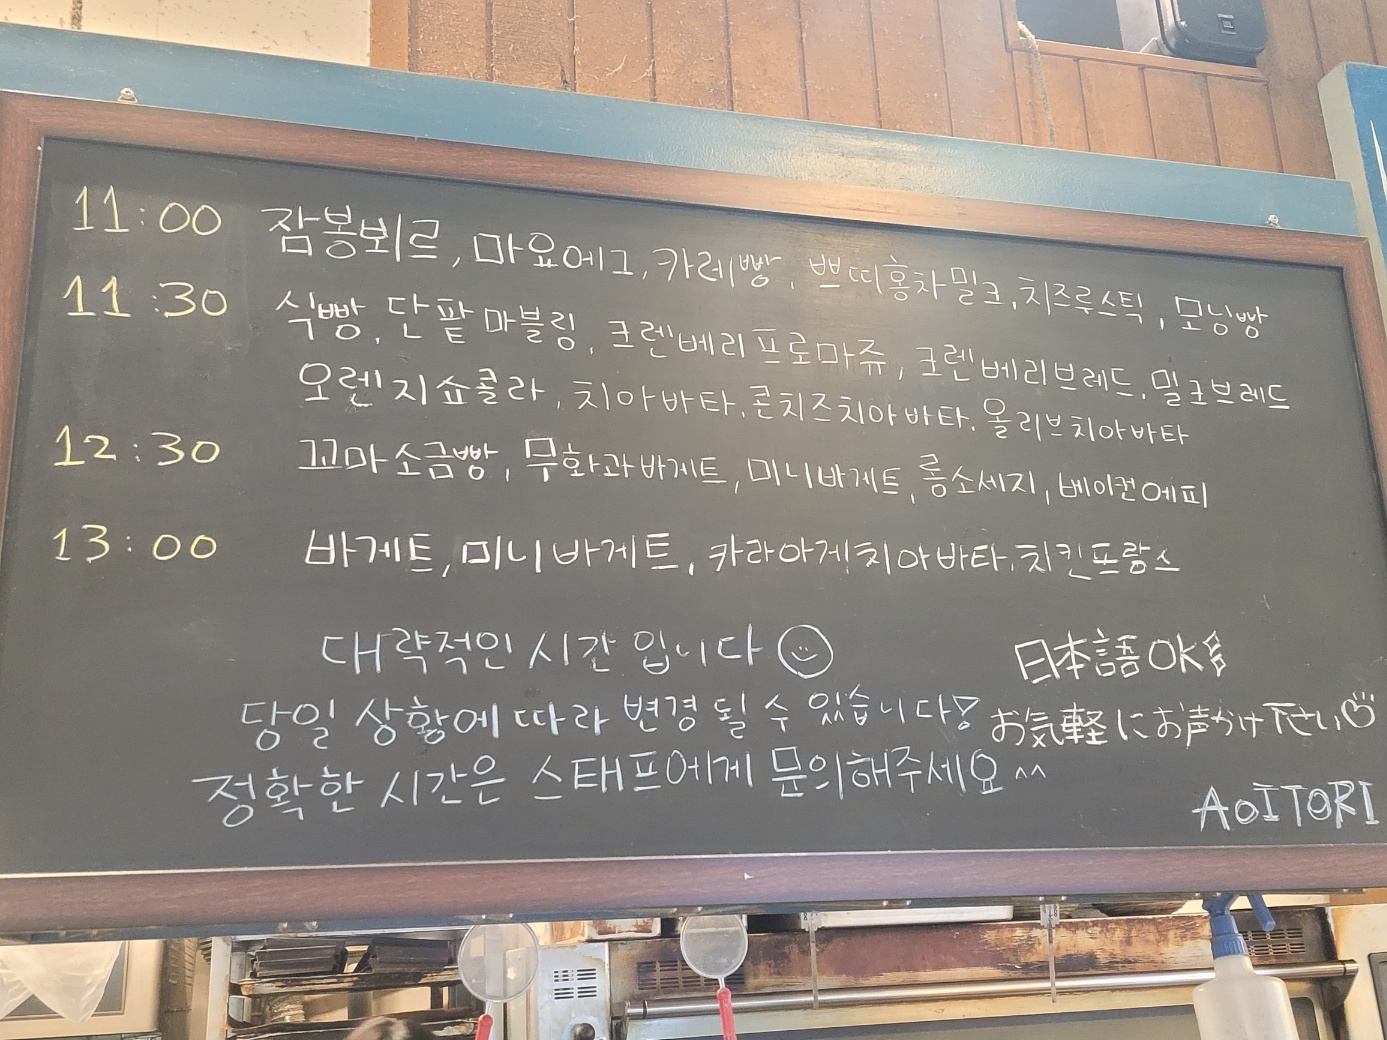 11:00 잠봉뵈르, 마요에그, 카레빵, 쁘띠홍차밀크, 치즈루스틱, 모닝빵
11:30 식빵, 단팥마블링, 크렌베리프로마쥬, 크렌베리브레드, 밀크브레드
오렌지쇼콜라, 치아바타, 콘치즈치아바타, 올리브치아바타
12:30 꼬마소금빵, 무화과바게트, 미니바게트, 롱소세지, 베이컨에피
13:00 바게트, 미니바게트, 카라아게치아바타, 치킨프랑스
대략적인 시간 입니다
당일 상황에 따라 변경 될 수 있습니다!
정확한 시간은 스태프에게 문의해주세요^^
日本語OK
お気軽にお声かけ下さい
AOITORI